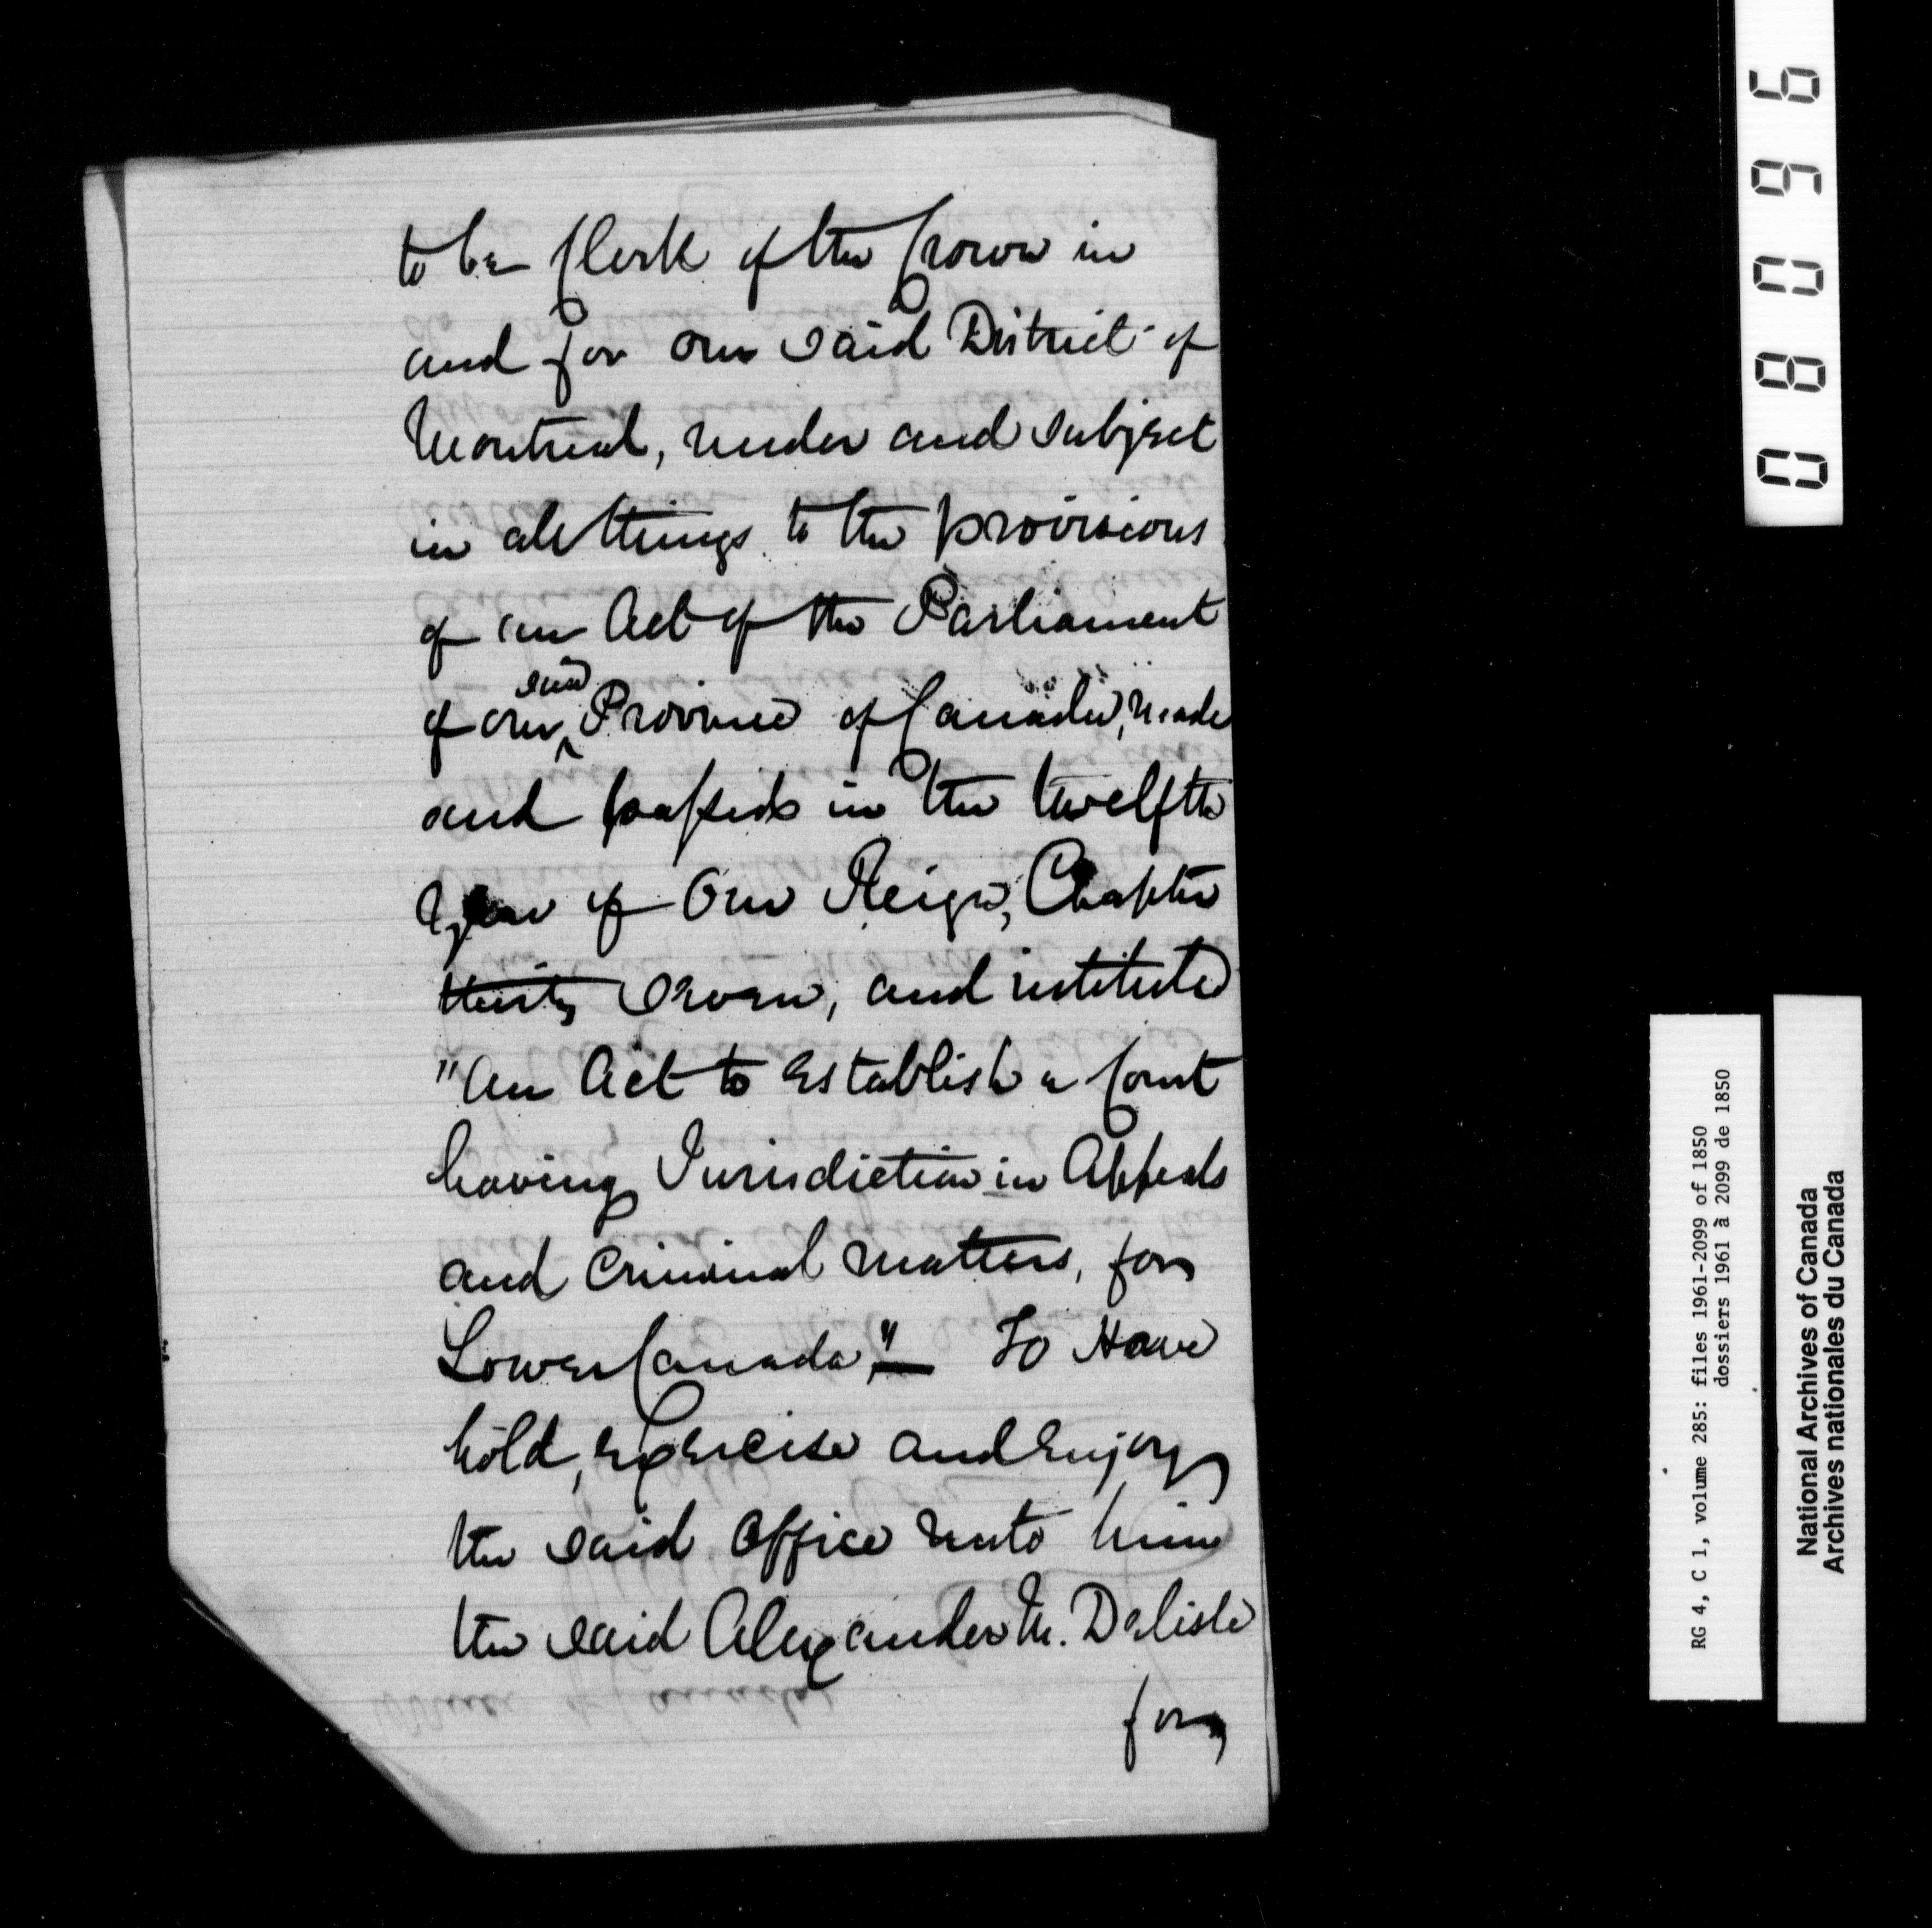 to be Clerk of the Crown in
and for our said District of
Montreal, under and subject
in all things to the provisions
of an Act of the Parliament
of our said Province of Canada, made
and passed in the twelfth
year of Our Reign, Chapter
thirty seven, and intituled
"An Act to Establish a Court
having Jurisdiction in Appeals
and Criminal matters, for
Lower Canada," — To Have
hold, exercise and enjoy
the said Office unto him
the said Alexander M. Delisle
for
08096
RG 4, C 1, volume 285: files 1961-2099 of 1850
dossiers 1961 à 2099 de 1850
National Archives of Canada
Archives nationales du Canada